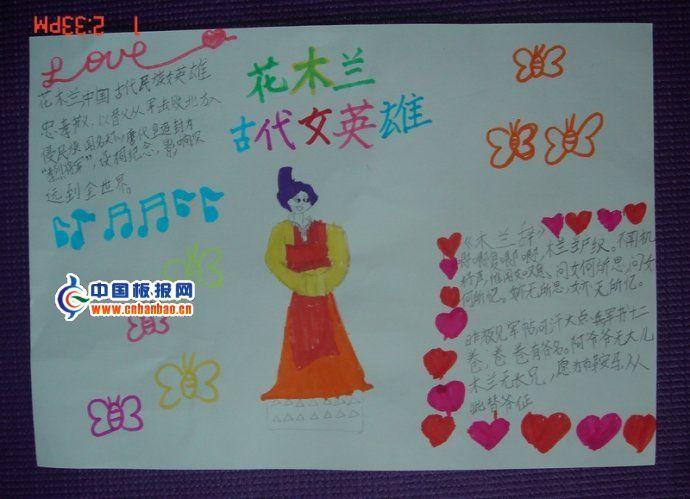 1 2:33PM
Love
花木兰
古代女英雄
花木兰中国古代民族女英雄
忠孝
侵民族闻名天下唐代皇帝封为
远到全世界。
中国板报网
www.cnbanbao.cn
《木兰辞》
唧唧复唧唧,木兰当户织。不闻机
杼声,惟闻女叹息。问女何所思,问女
何所忆。女亦无所思,女亦无所忆。
昨夜见军帖,可汗大点兵,军书十二
卷,卷卷有爷名。阿爷无大儿
木兰无长兄,愿为市鞍马,从
此替爷征